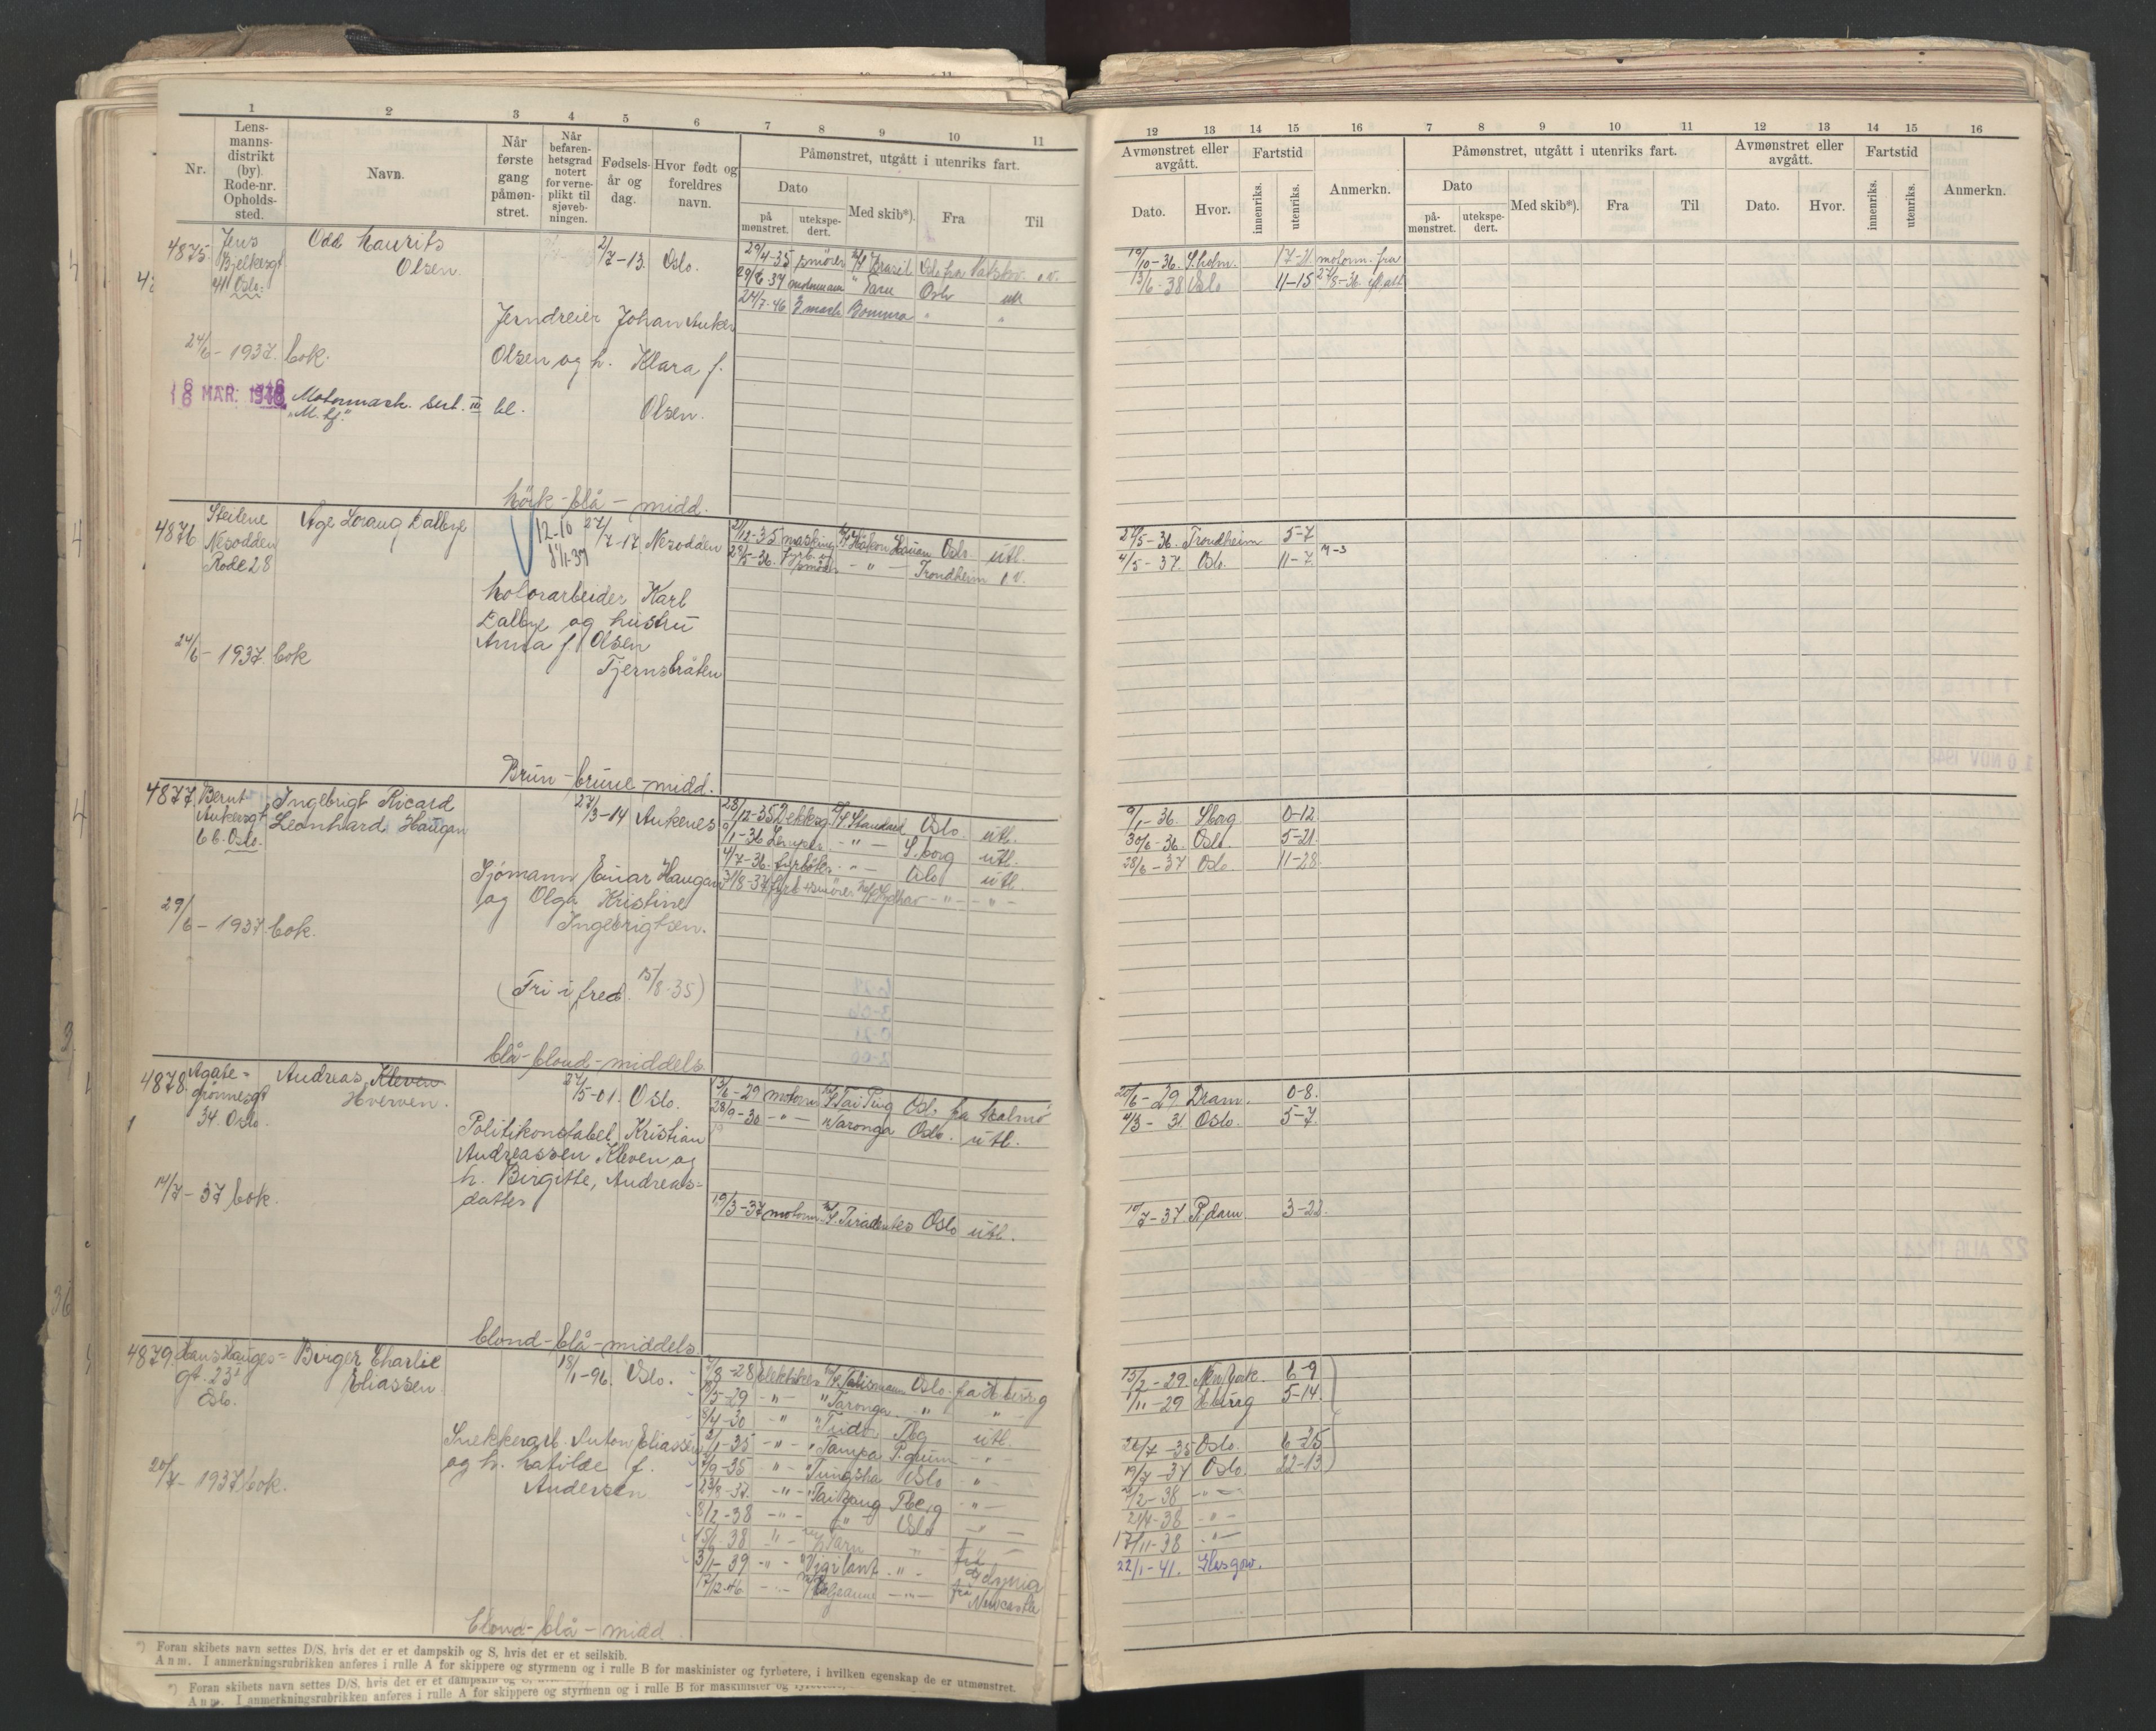 1 2 3 4 5 6 7 8 9 10 11
Nr.
Lens-
manns-
distrikt
(by).
Rode-nr.
Opholds-
sted.
Navn.
Når
første
gang
påmøn-
stret.
Når
befaren-
hetsgrad
notert
for verne-
plikt til
sjøveb-
ningen.
Fødsels-
år og
dag.
Hvor født og
foreldres
navn.
Påmønstret, utgått i utenriks fart.
Dato
på
mønstret.
utekspe-
dert.
Med skib*).
Fra
Til
4875. Jens Odd Laurits 2/7-13. Oslo.
Bjelkesgt Olsen
41 Oslo.
29/4-35 smører Brazil Oslo fra
29/6-37 motormann " Tara Oslo utl
24/7-46 Bomma " "
Jerndreier Johan Anker
24/6-1937. bok. Olsen og h. Klara f.
Olsen.
MAR. Motormask. sert. III kl.
Mörk-blå-midd.
4876 Steilene Age Loraug Dalbye 12-10 27/7-17. Nesodden
Nesodden
Rode 28
2/12-35 Håkon Hauan Oslo utl.
28/5-36. Fyrb. og smører -"- Trondheim
Motorarbeider Karl
Dalbye og hustru
Anna f. Olsen
24/6-1937. bok Tjernsbråten
Brun-brune-midd.
4877 Bernt Ingebrigt Ricard 27/3-14 Ankenes
Ankersgt Leonhard Haugan
6 b. Oslo.
28/12-35 Dekksg. Standard Oslo. utl.
9/1-36 -"- S.borg utl.
4/7-36. fyrbøter -"- Oslo utl.
31/8-37 fyrb. smører Sydhav -"- -"-
Sjømann Einar Haugan
og Olga Kristine
29/6-1937. bok. Ingebrigtsen.
(Fri i fred. 15/8-35)
blå-blond-middels
4878. Agate- Andreas Kleven 27/5-01. Oslo.
grønnesgt Hverven.
34. Oslo.
13/6-29 motorm Tai Ping Osl. fra Malmö
28/9-30 -"- " Taronga Oslo. utl.
Politikonstabel Kristian
Andreassen Kleven og
h. Birgitte, Andreas-
14/7-37 bok. datter
19/3-37 motorm. Tiradentes Oslo utl.
blond-blå-middels
4879. Hans Hauges- Birger Charlie 18/1-96. Oslo.
gt. 23 Eliassen
Oslo.
/8-28 elektriker Talisman Oslo fra H.burg
/5-29 -"- " Taronga " "
/4-30 -"- " Tudor Tbg utl.
2/1-35 -"- " Tampa P.grunn -"-
/9-35 -"- " Tungsha Oslo -"-
23/8-37. -"- " Tai Yang Tberg -"-
8/2-38 -"- " Oslo -"-
15/6-38 -"- Tarn " -"-
3/1-39 -"- " Vigilant -"- til Gdynia
17/12-46 -"- Beljeanne -"- fra Newcastle
Snekkerarb. Anton Eliassen
og h. Matilde f.
20/7-1937 bok. Andersen
blond-blå-midd
*) Foran skibets navn settes D/S, hvis det er et dampskib og S, hvis det er et seilskib.
Anm. I anmerkningsrubrikken anføres i rulle A for skippere og styrmenn og i rulle B for maskinister og fyrbøtere, i hvilken egenskap de er utmønstret.
*) Foran skibets navn settes D/S, hvis det er et dampskib og S,
Anm. I anmerkningsrubrikken anføres i rulle A for skippere og styrmenn og i rulle B for maskinister og
12 13 14 15 16 7 8 9 10 11 12 13 14 15 16
Avmønstret eller
avgått.
Fartstid
Dato.
Hvor.
innenriks.
utenriks.
Anmerkn.
Påmønstret, utgått i utenriks fart.
Dato
på-
mønstret.
utekspe-
dert.
Med skib*).
Fra
Til
Avmønstret eller
avgått.
Fartstid
Dato.
Hvor.
innenriks.
utenriks.
Anmerkn.
19/10-36. S.holm. 17-21 motorm. fra
13/6-38 Oslo 11-15 27/8-36.
27/5-36. Trondheim 5-7
4/5-37. Oslo. 11-7. M-3
9/1-36. S.borg 0-12
30/6-36. Oslo. 5-21.
28/6-37 Oslo. 11-28.
20/6-29 Dram. 0-8.
4/3-31 Oslo. 5-7.
10/7-37 R.dam. 3-22.
15/2-29. New York. 6-9
1/11-29 H.burg 5-14.
26/7-35 Oslo. 6-25
19/7-37 Oslo. 22-13
/2-38 -"-
21/4-38 -"-
17/11-38 -"-
22/1-41. Glasgow.